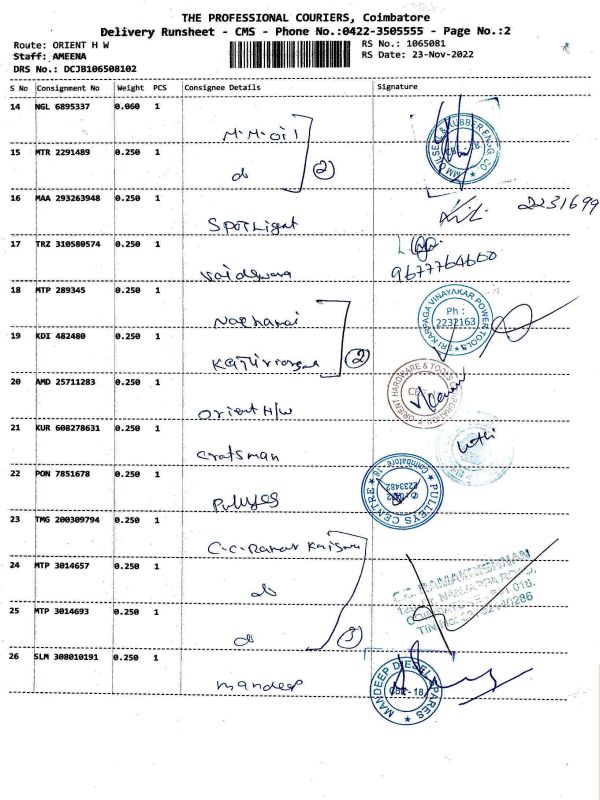 THE PROFESSIONAL COURIERS, Coimbatore
Delivery Runsheet - CMS - Phone No.:0422-3505555 - Page No.:2
Route: ORIENT H W
RS No.: 1065081
Staff: AMEENA
RS Date: 23-Nov-2022
DRS No.: DCJB106508102
S No Consignment No Weight PCS Consignee Details Signature
14 NGL 6895337 0.060 1
M.M.oil
15 MTR 2291489 0.250 1
do (2)
16 MAA 293263948 0.250 1
2231699
SPOTLight
17 TRZ 310580574 0.250 1
9677764660
18 MTP 289345 0.250 1
SRI KARPAGA VINAYAKAR POWER TOOLS
Ph :
2232163
19 KDI 482480 0.250 1
(2)
20 AMD 25711283 0.250 1
ORIENT HARDWARE & TOOLS
Orient H/W
21 KUR 608278631 0.250 1
Craftsman
22 PON 7851678 0.250 1
PULLEYS CENTRE
Coimbatore - 18
2233482
23 TMG 200309794 0.250 1
24 MTP 3014657 0.250 1
do
C.C. RAMAKRISHNAN
25 MTP 3014693 0.250 1
do (3)
26 SLM 308010191 0.250 1
mandeep
MANDEEP DIESEL SPARES
CBE - 18